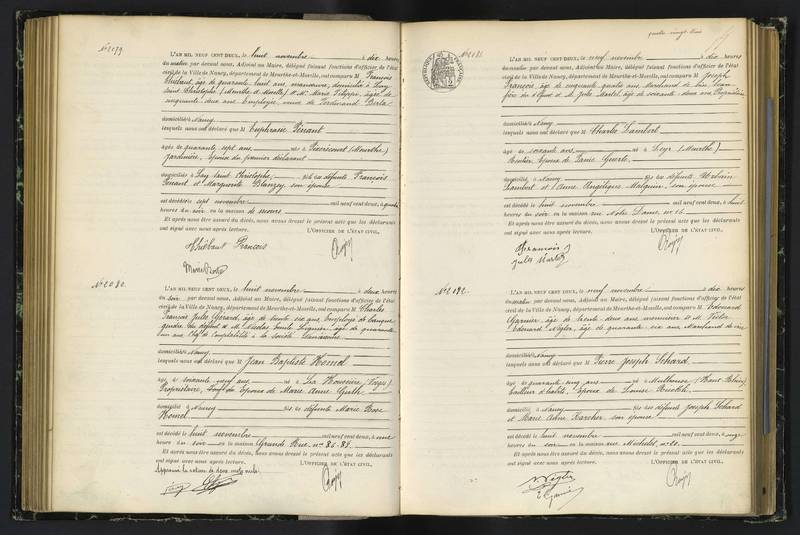 N° 2079.
L'AN MIL NEUF CENT DEUX, le huit novembre à dix heures
du matin par devant nous, Adjoint au Maire, délégué faisant fonctions d'officier de l'état
civil de la Ville de Nancy, département de Meurthe-et-Moselle, ont comparu M François
Thiébaut, âgé de quarante huit ans, manœuvre, domicilié à Lay
Saint Christophe (Meurthe & Moselle) & Mme Marie Philippe, âgée de
cinquante deux ans Employée, veuve de Ferdinand Berla
domiciliés Nancy
lesquels nous ont déclaré que M Euphrasie Pénant
âgée de quarante sept ans née à Pixerécourt (Meurthe)
Jardinière, épouse du premier déclarant
domiciliée à Lay Saint Christophe, fille des défunts François
Penant et Marguerite Blanzey son épouse
est décédée sept novembre mil neuf cent deux, à quatre
heures du soir en la maison de secours
Et après nous être assuré du décès, nous avons dressé le présent acte que les déclarants
ont signé avec nous après lecture. L'OFFICIER DE L'ÉTAT CIVIL,
Thiébaut François
N° 2080.
L'AN MIL NEUF CENT DEUX, le huit novembre à deux heures
du soir par devant nous, Adjoint au Maire, délégué faisant fonctions d'officier de l'état
civil de la Ville de Nancy, département de Meurthe-et-Moselle, ont comparu M Charles
François Jules Gérard, âgé de trente six ans, Employé de banque
gendre du défunt & M Nicolas Emile, âgé de quarante
un ans Chef de Comptabilité à la Société
domiciliés Nancy
lesquels nous ont déclaré que M Jean Baptiste Homel
âgé de soixante neuf ans né à La Houssière (Vosges)
Propriétaire, époux de Marie Anne Guth
domicilié à Nancy fils de défunte Marie Rose
Homel
est décédé le huit novembre mil neuf cent deux, à une
heure du soir en la maison Grande Rue, n° 86-88.
Et après nous être assuré du décès, nous avons dressé le présent acte que les déclarants
ont signé avec nous après lecture. L'OFFICIER DE L'ÉTAT CIVIL,
Approuvé la rature de deux mots nuls.
quatre vingt trois
N° 2081.
L'AN MIL NEUF CENT DEUX, le neuf novembre à dix heures
du matin par devant nous, Adjoint au Maire, délégué faisant fonctions d'officier de l'état
civil de la Ville de Nancy, département de Meurthe-et-Moselle, ont comparu M Joseph
François, âgé de cinquante quatre ans, Marchand de vin, beau
frère du défunt & M Jules Martel, âgé de soixante deux ans Propriétaire
domiciliés à Nancy
lesquels nous ont déclaré que M Charles Lambert
âgé de soixante ans né à Leyr (Meurthe)
Rentier époux de Lucie Guerle
domicilié à Nancy fils des défunts Urbain
Lambert et Anne Angélique Malguin, son épouse
est décédé le huit novembre mil neuf cent deux, à huit
heures du soir en la maison rue Notre Dame, n° 16
Et après nous être assuré du décès, nous avons dressé le présent acte que les déclarants
ont signé avec nous après lecture. L'OFFICIER DE L'ÉTAT CIVIL,
Jules Martel
N° 2082.
L'AN MIL NEUF CENT DEUX, le neuf novembre à dix heures
du matin par devant nous, Adjoint au Maire, délégué faisant fonctions d'officier de l'état
civil de la Ville de Nancy, département de Meurthe-et-Moselle, ont comparu M Edouard
Garnier, âgé de trente deux ans, menuisier & M Victor
Edouard Négler, âgé de quarante six ans Marchand de vin
domiciliés Nancy
lesquels nous ont déclaré que M Pierre Joseph Schard
âgé de quarante cinq ans né à Mulhouse (Haut Rhin)
tailleur d'habits, époux de Louise
domicilié à Nancy fils des défunts Joseph Schard
et Marie Anne Karcher son épouse
est décédé le huit novembre mil neuf cent deux, à onze
heures du soir en la maison rue Michelet n° 20
Et après nous être assuré du décès, nous avons dressé le présent acte que les déclarants
ont signé avec nous après lecture. L'OFFICIER DE L'ÉTAT CIVIL,
V. Négler
E. Garnier